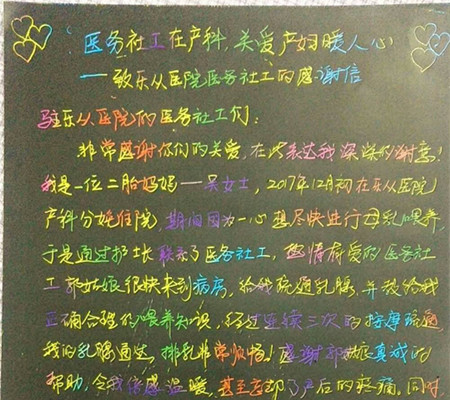 医务社工在产科，关爱产妇暖人心
——致乐从医院医务社工的感谢信
驻乐从医院的医务社工们：
非常感谢你们的关爱，在此表达我深深的谢意！
我是一位二胎妈妈——吴女士，2017年12月初在乐从医院
产科分娩住院，期间因为一心想尽快进行母乳喂养，
于是通过护士长联系了医务社工，热情有爱的医务社
工郭姑娘很快来到病房，给我疏通乳腺，并教给我
正确合理的喂养知识，经过连续三次的按摩疏通，
我的乳腺通达，排乳非常顺畅！感谢郭姑娘真诚的
帮助，令我倍感温暖，甚至忘却了产后的疼痛。同时